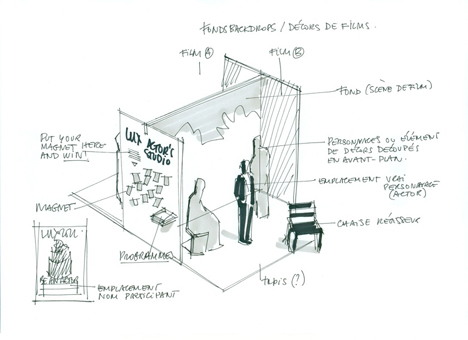 FONDS BACKDROPS / DÉCORS DE FILMS.
FILM A
FILM B
FOND (SCÈNE DE FILM)
PUT YOUR
MAGNET HERE
AND WIN!
LUX ACTOR'S
STUDIO
PERSONNAGES OU ÉLÉMENT
DE DÉCORS DÉCOUPÉS
EN AVANT-PLAN.
EMPLACEMENT VRAI
PERSONNAGE
(ACTOR)
MAGNET
CHAISE RÉALISATEUR
PROGRAMME
TAPIS (?)
EMPLACEMENT
NOM PARTICIPANT